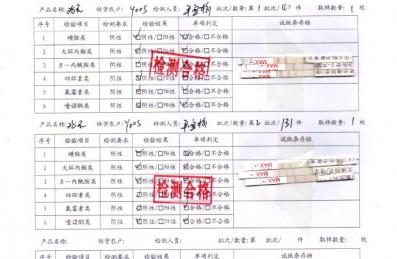 产品名称: 鸡蛋 供货农户: Y005 检测人员: 批次/数量: 第1批次/40件 取样数量: 1枚
序号 检验项目 检测要求 检验结果 单项判定 试纸条存档
1 磺胺类 阴性 ☑阴性/□阳性 ☑合格/□不合格
2 大环内酯类 阴性 ☑阴性/□阳性 ☑合格/□不合格
3 β-内酰胺类 阴性 ☑阴性/□阳性 ☑合格/□不合格
4 四环素类 阴性 ☑阴性/□阳性 ☑合格/□不合格
5 氟霉素类 阴性 ☑阴性/□阳性 ☑合格/□不合格
6 喹诺酮类 阴性 ☑阴性/□阳性 ☑合格/□不合格
检测合格
MAX
MAX
产品名称: 鸡蛋 供货农户: Y005 检测人员: 批次/数量: 第2批次/131件 取样数量: 1枚
序号 检验项目 检测要求 检验结果 单项判定 试纸条存档
1 磺胺类 阴性 ☑阴性/□阳性 ☑合格/□不合格
2 大环内酯类 阴性 ☑阴性/□阳性 ☑合格/□不合格
3 β-内酰胺类 阴性 ☑阴性/□阳性 ☑合格/□不合格
4 四环素类 阴性 ☑阴性/□阳性 ☑合格/□不合格
5 氟霉素类 阴性 ☑阴性/□阳性 ☑合格/□不合格
6 喹诺酮类 阴性 ☑阴性/□阳性 ☑合格/□不合格
检测合格
MAX
MAX
产品名称: 供货农户: 检测人员: 批次/数量: 第 批次/ 件 取样数量: 枚
序号 检验项目 检测要求 检验结果 单项判定 试纸条存档